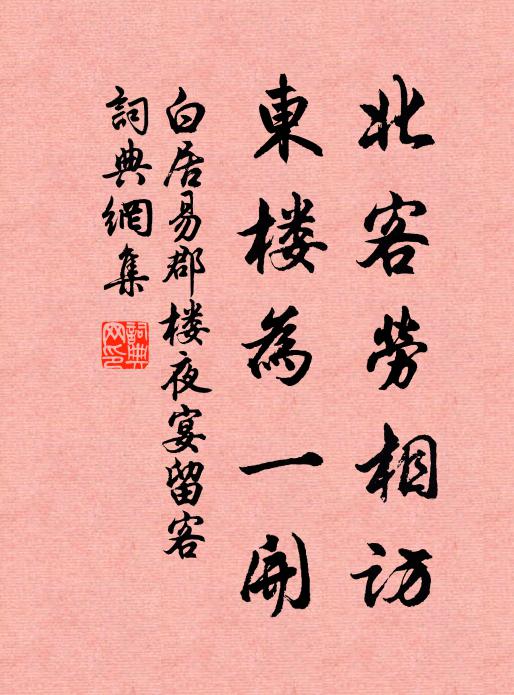 北客勞相訪
東楼為一開
白居易郡楼夜宴留客
詞典網集
詞典网印